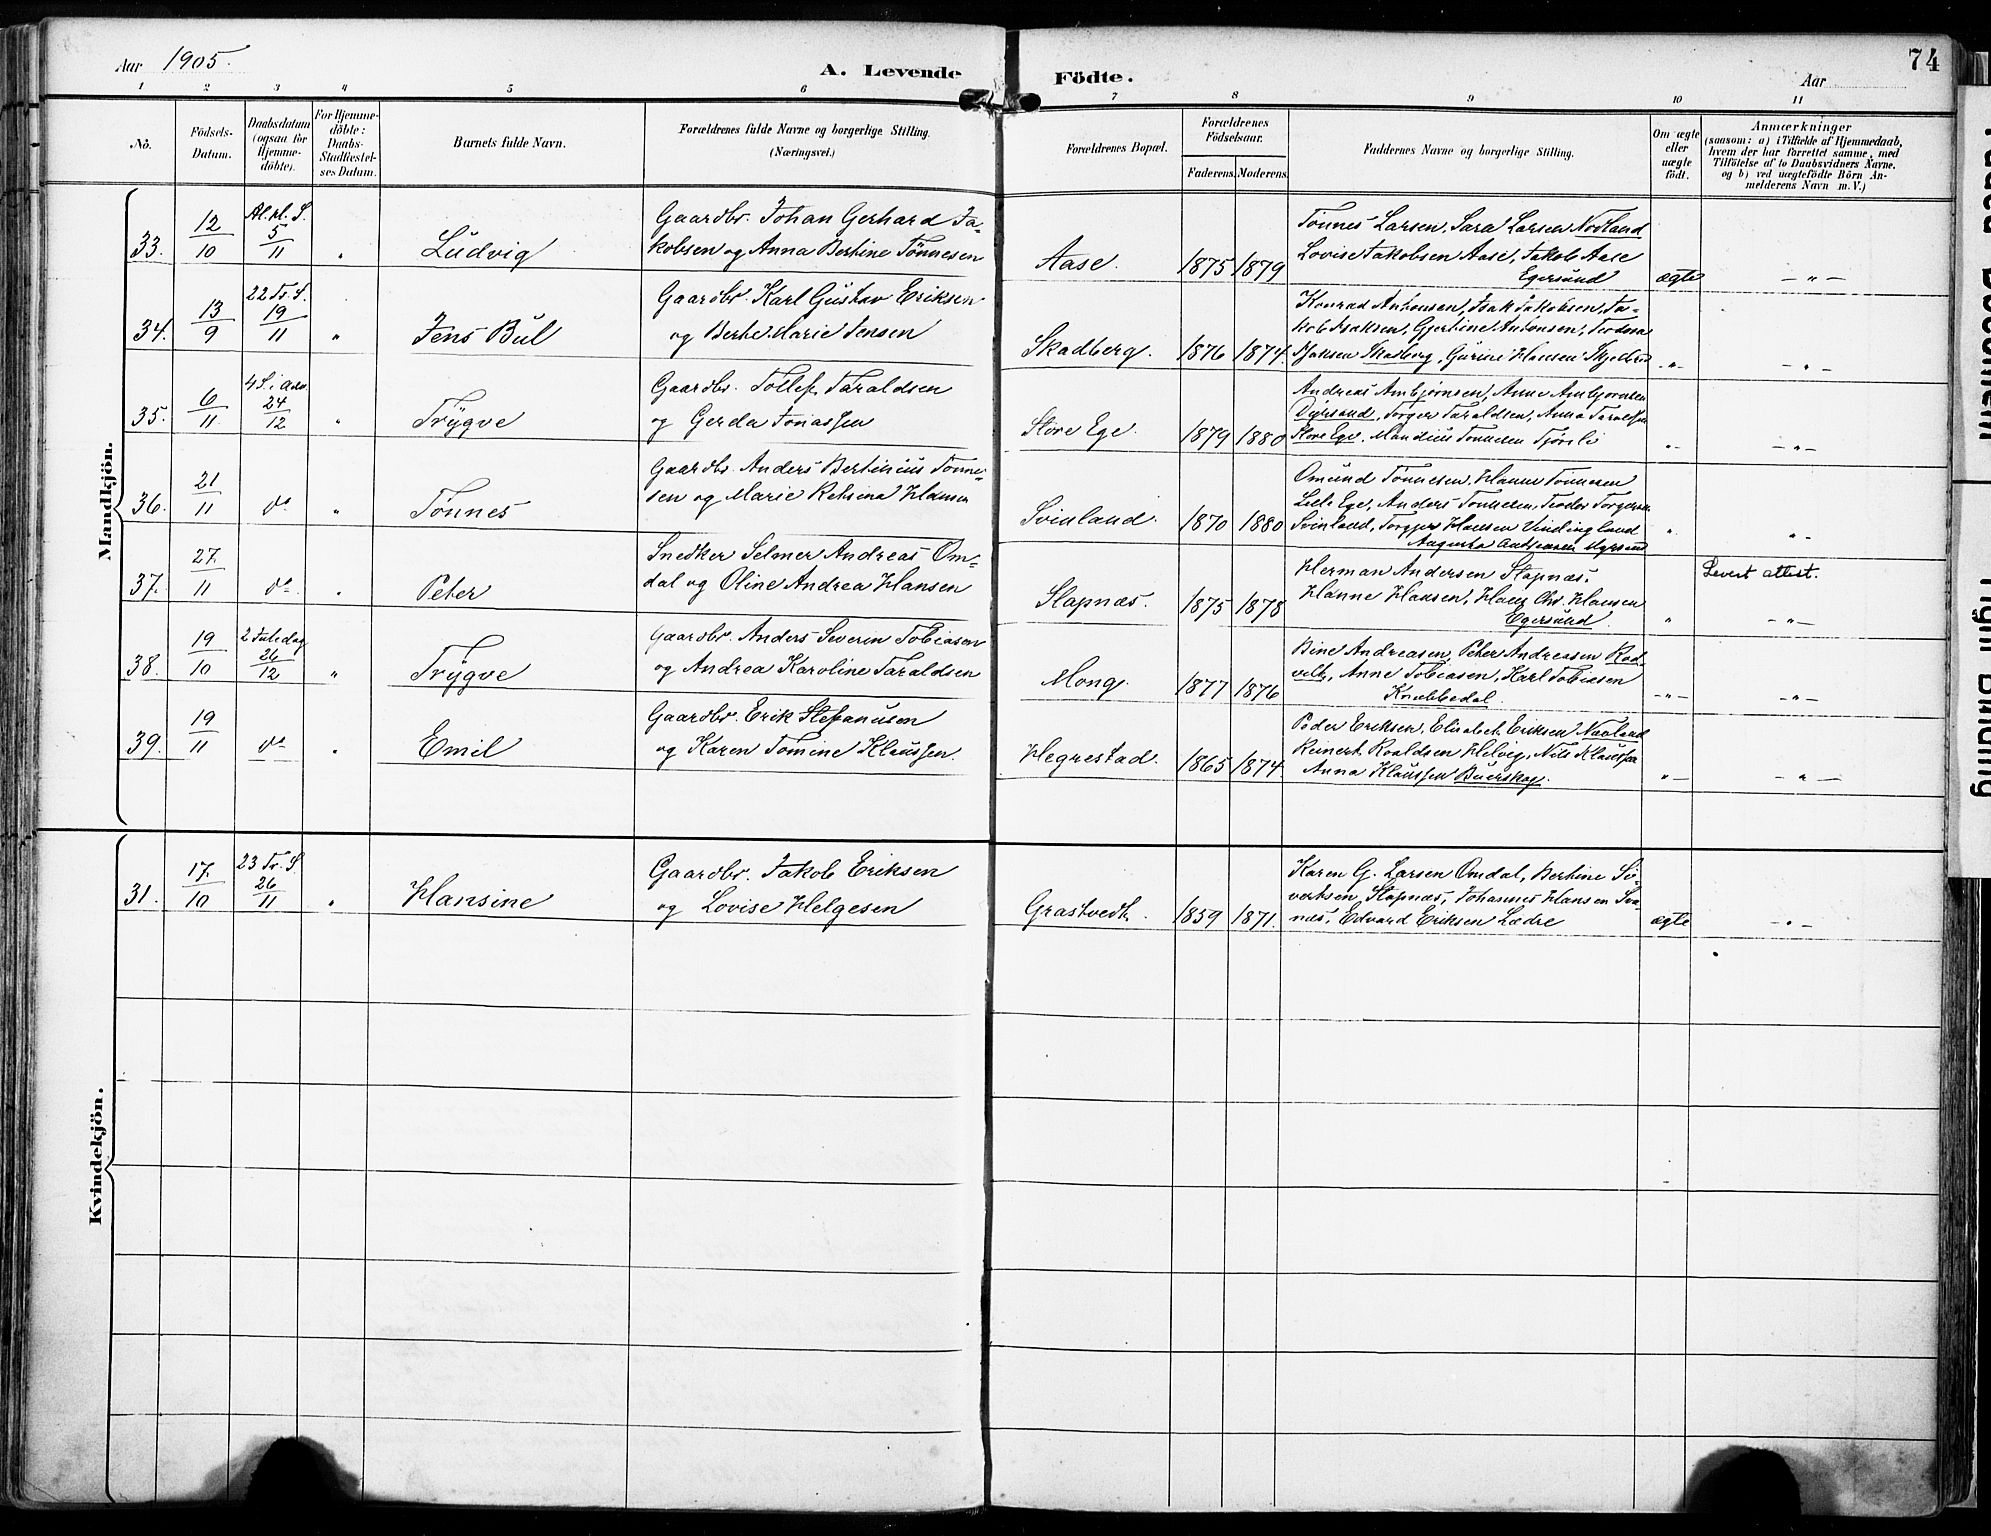 Aar 1905.
A. Levende Födte.
Aar
74
1 2 3 4 5 6 7 8 9 10 11
No.
Födsels-Datum.
Daabsdatum (ogsaa for Hjemme-döbte).
For Hjemme-döbte: Daabs-Stadfæstel-ses Datum.
Barnets fulde Navn.
Forældrenes fulde Navne og borgerlige Stilling.
(Næringsvei.)
Forældrenes Bopæl.
Forældrenes Födselsaar.
Faderens. Moderens.
Faddernes Navne og borgerlige Stilling.
Om ægte eller uægte födt.
Anmærkninger
(saasom: a) i Tilfælde af Hjemmedaab,
hvem der har forrettet samme, med
Tilföielse af to Daabsvidners Navne.
og b) ved uægtefödte Börn An-
melderens Navn m. V.)
Mandkjön.
33. 12/10 Al. hl. S. 5/11 " Ludvig
Gaardbr. Johan Gerhard Ja-
kobsen og Anna Bertine Tønnesen
Aase. 1875 1879
Tønnes Larsen, Sara Larsen Nodland
Lovise Jakobsen Aase, Jakob Aase
Egersund
ægte - " -
34. 13/9 22 Tr. S. 19/11 " Jens Bul
Gaardbr. Karl Gustav Eriksen
og Berthe Marie Jensen
Skadberg. 1876 1874.
Konrad Antonsen, Isak Jakobsen, Ja-
kob Isaksen, Gjertine Antonsen,
Isaksen Skadberg, Gurine Hansen
" - " -
35. 6/11 4 S. i adv. 24/12 " Trygve
Gaardbr. Tollef Taraldsen
og Gerda Jonassen
Store Ege. 1879 1880
Andreas Ambjørnsen, Anne Ambjørnsen
Torger Taraldsen, Anna
Store Ege, Tønnesen Tjørnli
" "
36. 21/11 do " Tønnes
Gaardbr. Anders Bertinius Tønne-
sen og Marie Retsina Hansen
Svinland. 1870 1880
Omund Tønnesen, Hanne Tønnesen
Lille Ege, Anders Tønnesen, Teodor Torgersen
Svinland, Torger Hansen Vindingland
Augusta
" "
37. 27/11 do " Peter
Snedker Selmer Andreas Om-
dal og Oline Andrea Hansen
Slapnæs. 1875 1878
Herman Andersen Slapnæs,
Hanne Hansen, Hans Chr. Hansen
Egersund.
" Levert attest.
- " -
38. 19/10 2 Juledag 26/12 " Trygve
Gaardbr. Anders Severin Tobiasen
og Andrea Karoline Taraldsen
Mong. 1877 1876
Bine Andreasen, Peter Andreasen Rod-
velt, Anne Tobiasen, Karl Tobiasen
Knubbedal.
- " - "
39. 19/11 do " Emil
Gaardbr. Erik Stefanusen
og Karen Tomine Klaussen.
Hegrestad. 1865 1874
Peder Eriksen, Elisabet Eriksen Navland
Reinert Roaldsen Helvig, Nils Klaussen
Anna Klaussen Buerskog.
" - " -
Kvindekjön.
31. 17/10 23 Tr. S. 26/11 " Hansine
Gaardbr. Jakob Eriksen
og Lovise Helgesen
Grastvedt. 1859 1871.
Karen G. Larsen Omdal, Bertine Si-
vertsen Slapnæs, Johannes Hansen Sva-
næs, Edvard Eriksen Lædre
ægte - " -